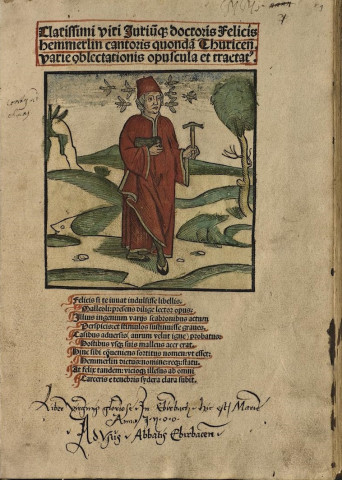 Clarissimi viri Juriūq; doctoris Felicis
hemmerlin cantoris quondā Thuriceñ.
varie oblectationis opuscula et tractat⁹.
Felicis si te iuuat indulsisse libellis
Malleoli: presens dilige lector opus.
Illius ingenium varijs scabronibus actum
Perspicis: et stimulos sustinuisse graues.
Casibus aduersis, aurum velut igne, probatus
Hostibus vsq; suis malleus acer erat.
Hinc sibi cōueniens sortitus nomen: vt esset
Hemmerlin dictus: nomine: reque: statu.
At felix tandem: vicioq; illesus ab omni
Carceris e tenebris sydera clara subit.
Liber virginis gloriose In Eberbach
Anno
Ad Vsus Abbatis Eberbaceñ